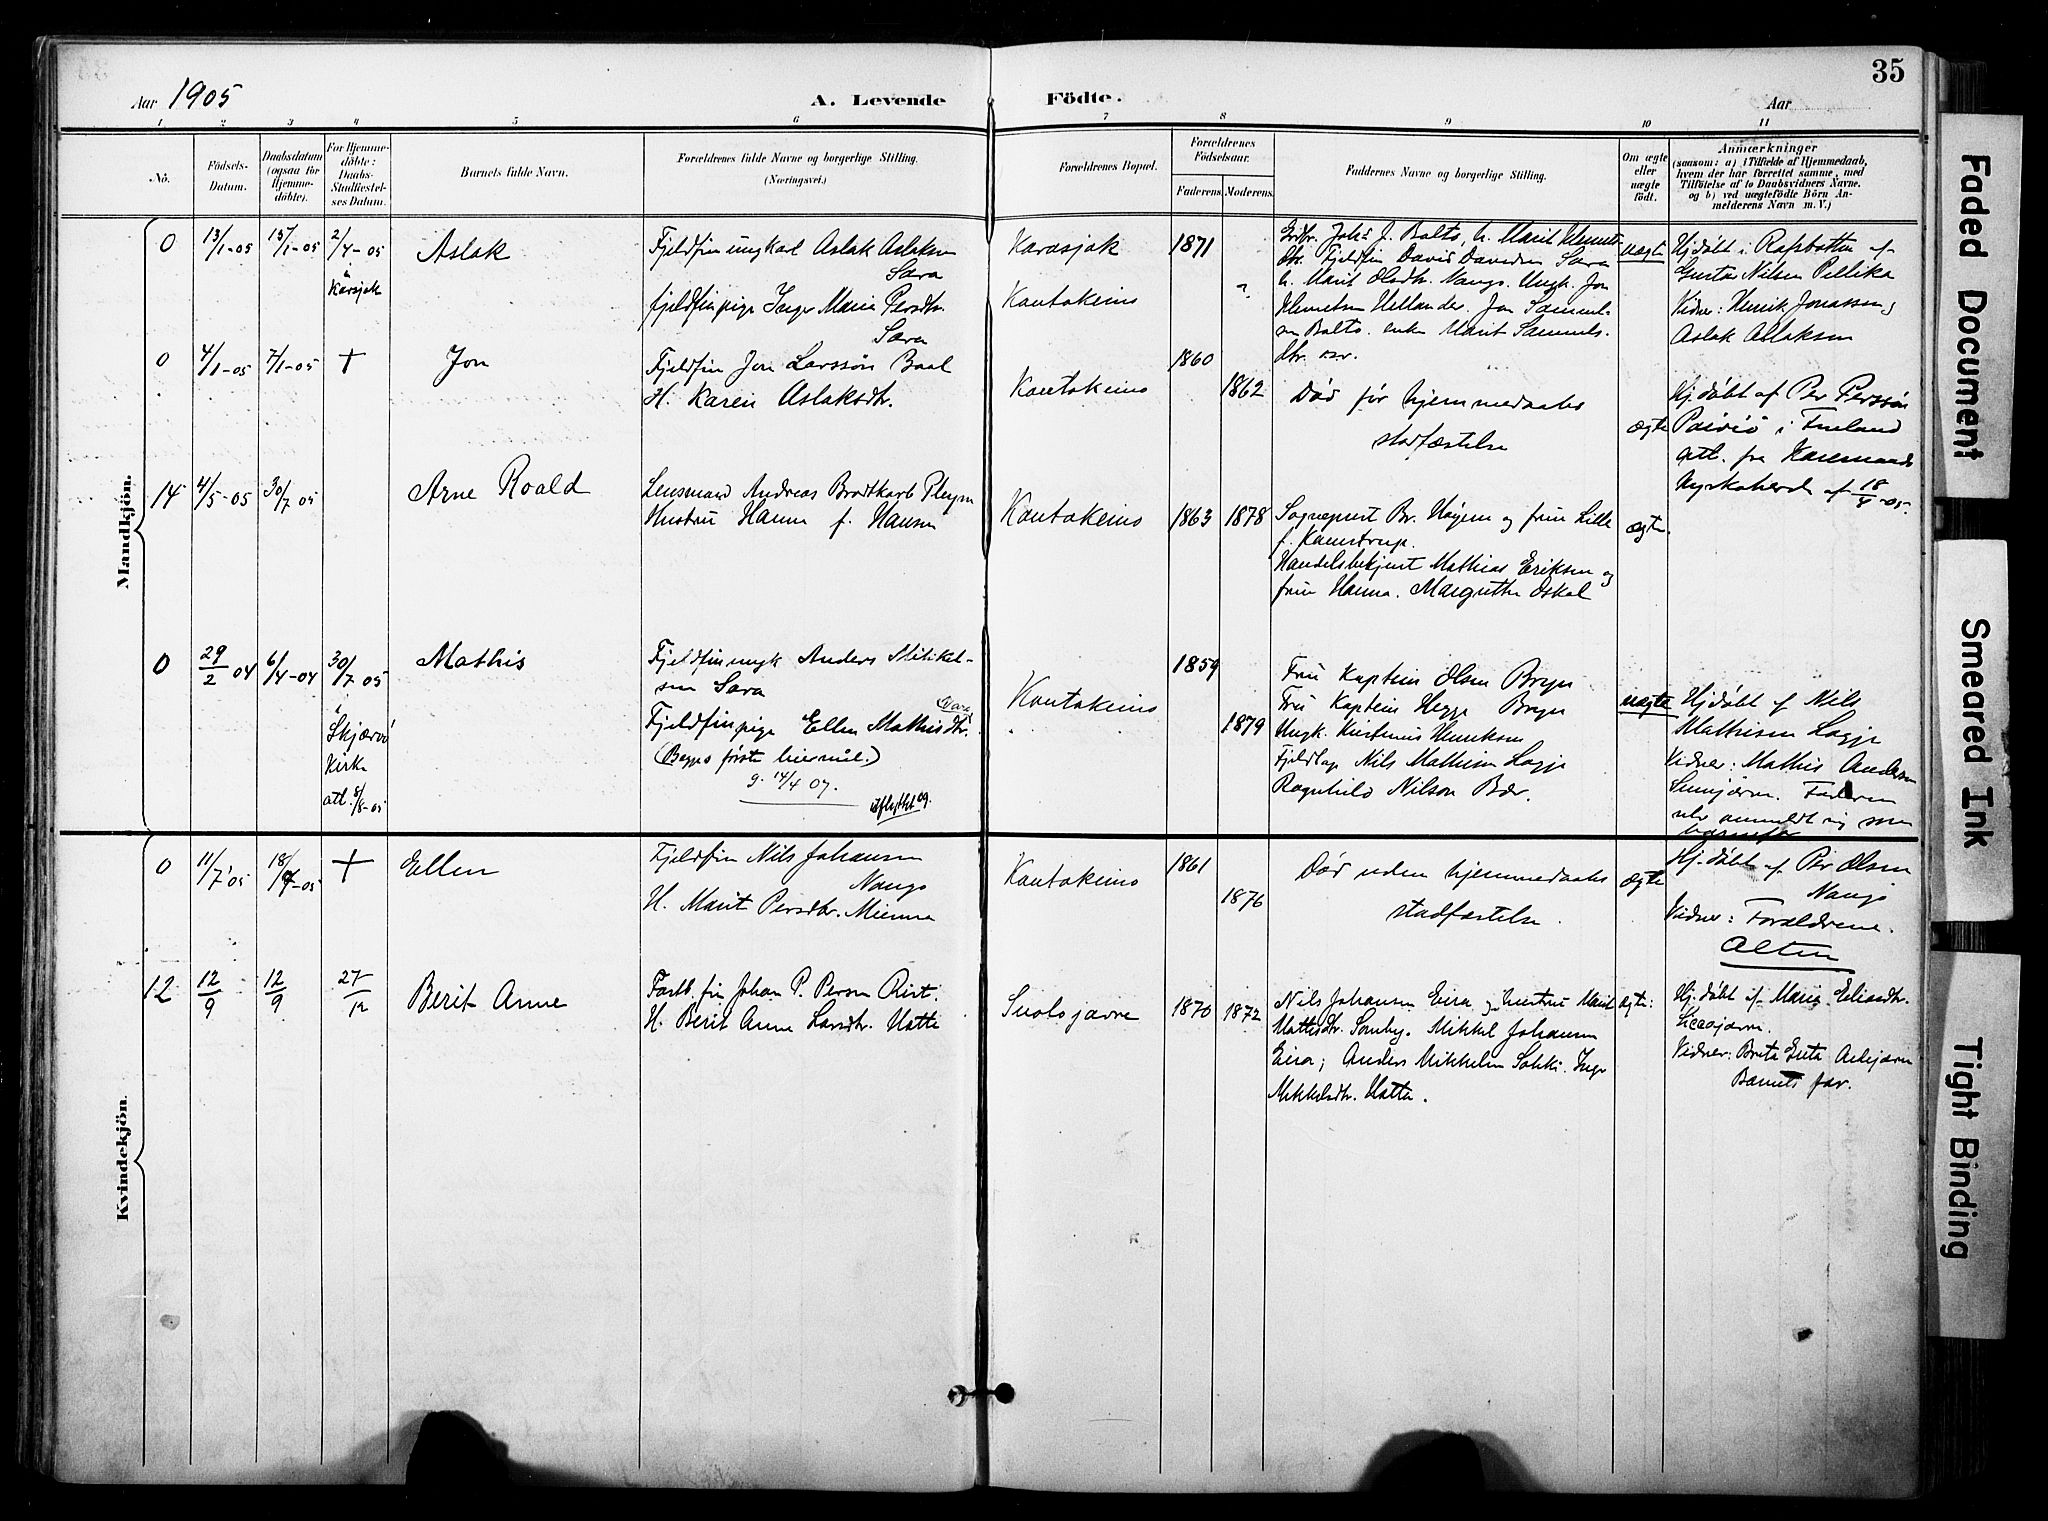 35
Aar 1905
A. Levende Födte.
Aar
1 2 3 4 5 6 7 8 9 10 11
Nô.
Födsels-
Datum.
Daabsdatum
(ogsaa for
Hjemme-
döbte).
For Hjemme-
döbte:
Daabs-
Stadfæstel-
ses Datum.
Barnets fulde Navn.
Forældrenes fulde Navne og borgerlige Stilling.
(Næringsvei.)
Forældrenes Bopæl.
Forældrenes
Födselsaar.
Faderens
Moderens
Faddernes Navne og borgerlige Stilling.
Om ægte
eller
uægte
födt.
Anmærkninger
(saasom: a) i Tilfælde af Hjemmedaab,
hvem der har forrettet samme, med
Tilföielse af to Daabsvidners Navne,
og b) ved uægtefödte Börn An-
melderens Navn m. V.)
Mandkjön.
0
13/1-05
15/1-05
2/4-05
Karsjok
Aslak
Fjeldfin ungkarl Aslak Aslaksen
Sara
fjeldfinpige Inger Maria Persdtr.
Sara
Karasjok
Kautokeino
1871
?
Joh: J. Balto, h. Marit Klemets-
dtr. Fjeldfin David Davidsen Sara
h. Marit Olsdtr. Nango. Ungk. Jon
Klemetsen Hellander. Jon Sammel-
sen Balto. enke Marit Sammels-
dtr.
uægte
Hj.døbt i af
Gustav Nilsen Pellika
Vidner: Henrik Jonassen,
Aslak Aslaksen
0
4/1-05
7/1-05
+
Jon
Fjeldfin Jon Larssön Baal
H. Karen Aslaksdtr.
Kautokeino
1860
1862
Död för hjemmedaabs
stadfæstelse
ægte
Hj.døbt af Per Perssön
Päiviö i Finland
att. fra
af 18/4-05.
14
4/5-05
30/7 05
Arne Roald
Lensmand Andreas Brodtkorb Pleym
Hustru Hanna f. Hansen
Kautokeino
1863
1878
Sogneprest Br. Höyem og frue Lilla
f. Kamstrup.
Handelsbetjent Mathias Eriksen og
frue Hanna. Margrethe Oskal
ægte.
0
29/2 04
6/4-04
30/7 05
Skjærvö
Kirke
att. 8/8-05
Mathis
Fjeldfinungk Anders Mikkel-
sen Sara
Fjeldfinpige Ellen Mathisdtr.
(Sara)
(Begges første leiermål.)
g. 14/4 07.
utflyttet 09.
Kautokeino
1859
1879
Fru Kaptein Olsen Bryn
Fru Kaptein Hegge Bryn
Ungk. Henriksen
Fjeldlap Nils Mathisen Logje
Ragnhild Nilson Bær.
uægte
Hj.døbt af Nils
Mathisen Logje
Vidner: Mathis Andersen
Faderen
selv anmeldt sig som
barnefar
Kvindekjön.
0
11/7'05
18/9-05
+
Ellen
Fjeldfin Nils Johansen
Nango
H. Marit Persdtr. Mienna
Kautokeino
1861
1876
Död uden hjemmedaabs
stadfæstelse.
ægte
Hj.døbt af Per Olsen
Nango
Vidner: Forældrene.
Alten
12
12/9
12/9
27/12
Berit Anne
Fastb. fin Johan P. Persen Rist.
H. Berit Anne Larsdtr. Hatta
Suolojavre
1870
1872
Nils Johansen Eira og hustru Marit
Mathisdtr. Somby. Mikkel Johansen
Eira; Anders Mikkelsen Sokki. Inger
Mikkelsdtr. Hatta.
ægte.
Hj.døbt af Maria Eliasdtr.
Vidner: Brita Greta
Barnets far.
Faded Document
Smeared Ink
Tight Binding